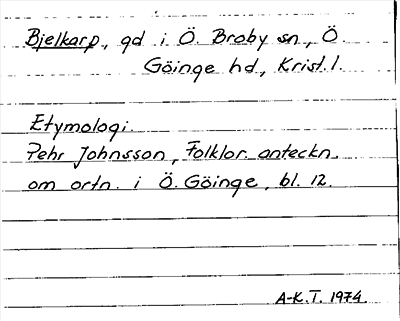 Bjelkarp, gd i Ö. Broby sn., Ö.
Göinge hd, Krist. l.
Etymologi.
Pehr Johnsson, Folklor. anteckn.
om ortn. i Ö. Göinge, bl. 12.
A-K.T. 1974.